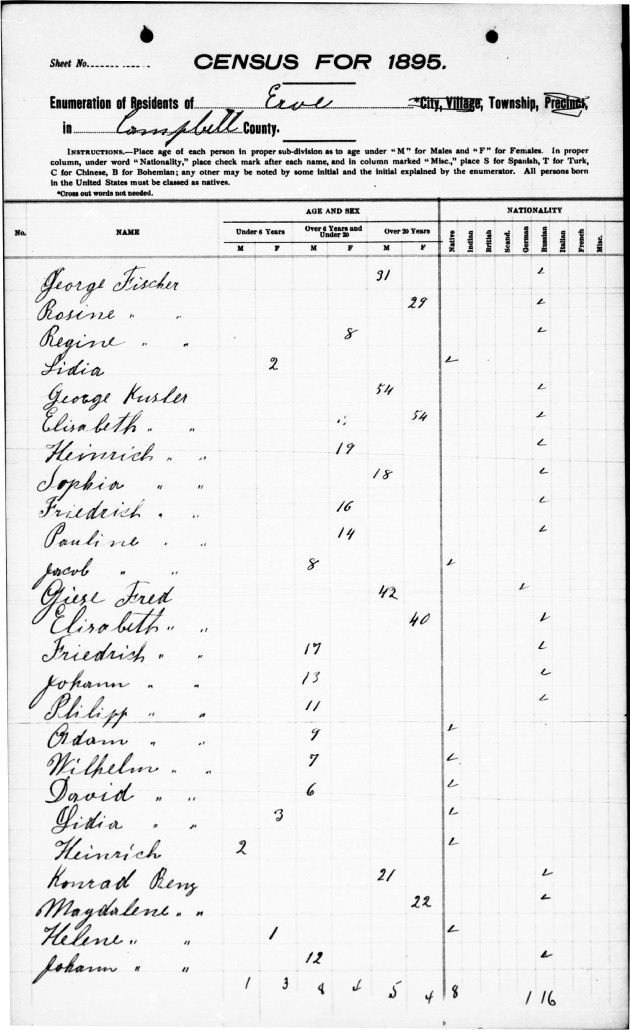 Sheet No.
CENSUS FOR 1895.
Enumeration of Residents of Eroe *City, Village, Township, Precinct,
in Campbell County.
INSTRUCTIONS.—Place age of each person in proper sub-division as to age under "M" for Males and "F" for Females. In proper
column, under word "Nationality," place check mark after each name, and in column marked "Misc.," place S for Spanish, T for Turk,
C for Chinese, B for Bohemian; any other may be noted by some initial and the initial explained by the enumerator. All persons born
in the United States must be classed as natives.
*Cross out words not needed.
AGE AND SEX NATIONALITY
No. NAME Under 6 Years Over 6 Years and Under 20 Over 20 Years Native Indian British Scand. German Russian Italian French Misc.
M F M F M F
George Fischer 31 ✓
Rosine " " 29 ✓
Regine " " 8 ✓
Lidia 2 ✓
George Kusler 54 ✓
Elisabeth " " 54 ✓
Heinrich " " 19 ✓
Sophia " " 18 ✓
Friedrich " " 16 ✓
Pauline " " 14 ✓
Jacob " " 8 ✓
Giese Fred 42 ✓
Elisabeth " " 40 ✓
Friedrich " " 17 ✓
Johann " " 13 ✓
Philipp " " 11 ✓
Adam " " 9 ✓
Wilhelm " " 7 ✓
David " " 6 ✓
Lidia " " 3 ✓
Heinrich 2 ✓
Konrad Benz 21 ✓
Magdalene " " 22 ✓
Helene " " 1 ✓
Johann " " 12 ✓
1 3 8 4 5 4 8 1 16